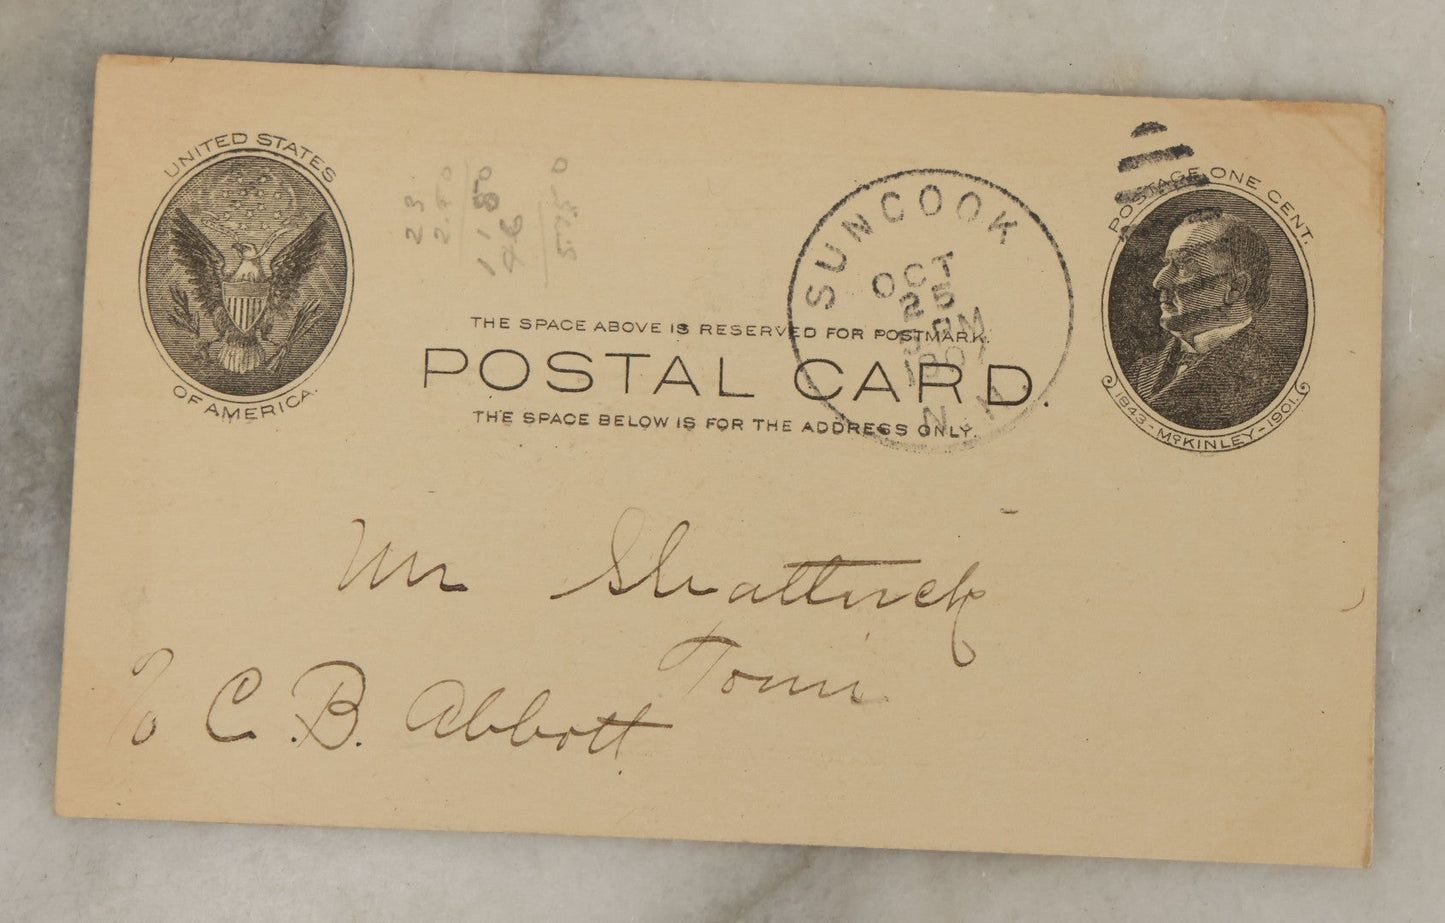 UNITED STATES
OF AMERICA.
23
2.50
1150
46
5.75.0
SUNCOOK
OCT
25
PM
1907
N.H.
POSTAGE ONE CENT.
1843-McKINLEY-1901.
THE SPACE ABOVE IS RESERVED FOR POSTMARK.
POSTAL CARD.
THE SPACE BELOW IS FOR THE ADDRESS ONLY.
Mr Shattuck
Town
℅ C. B. Abbott